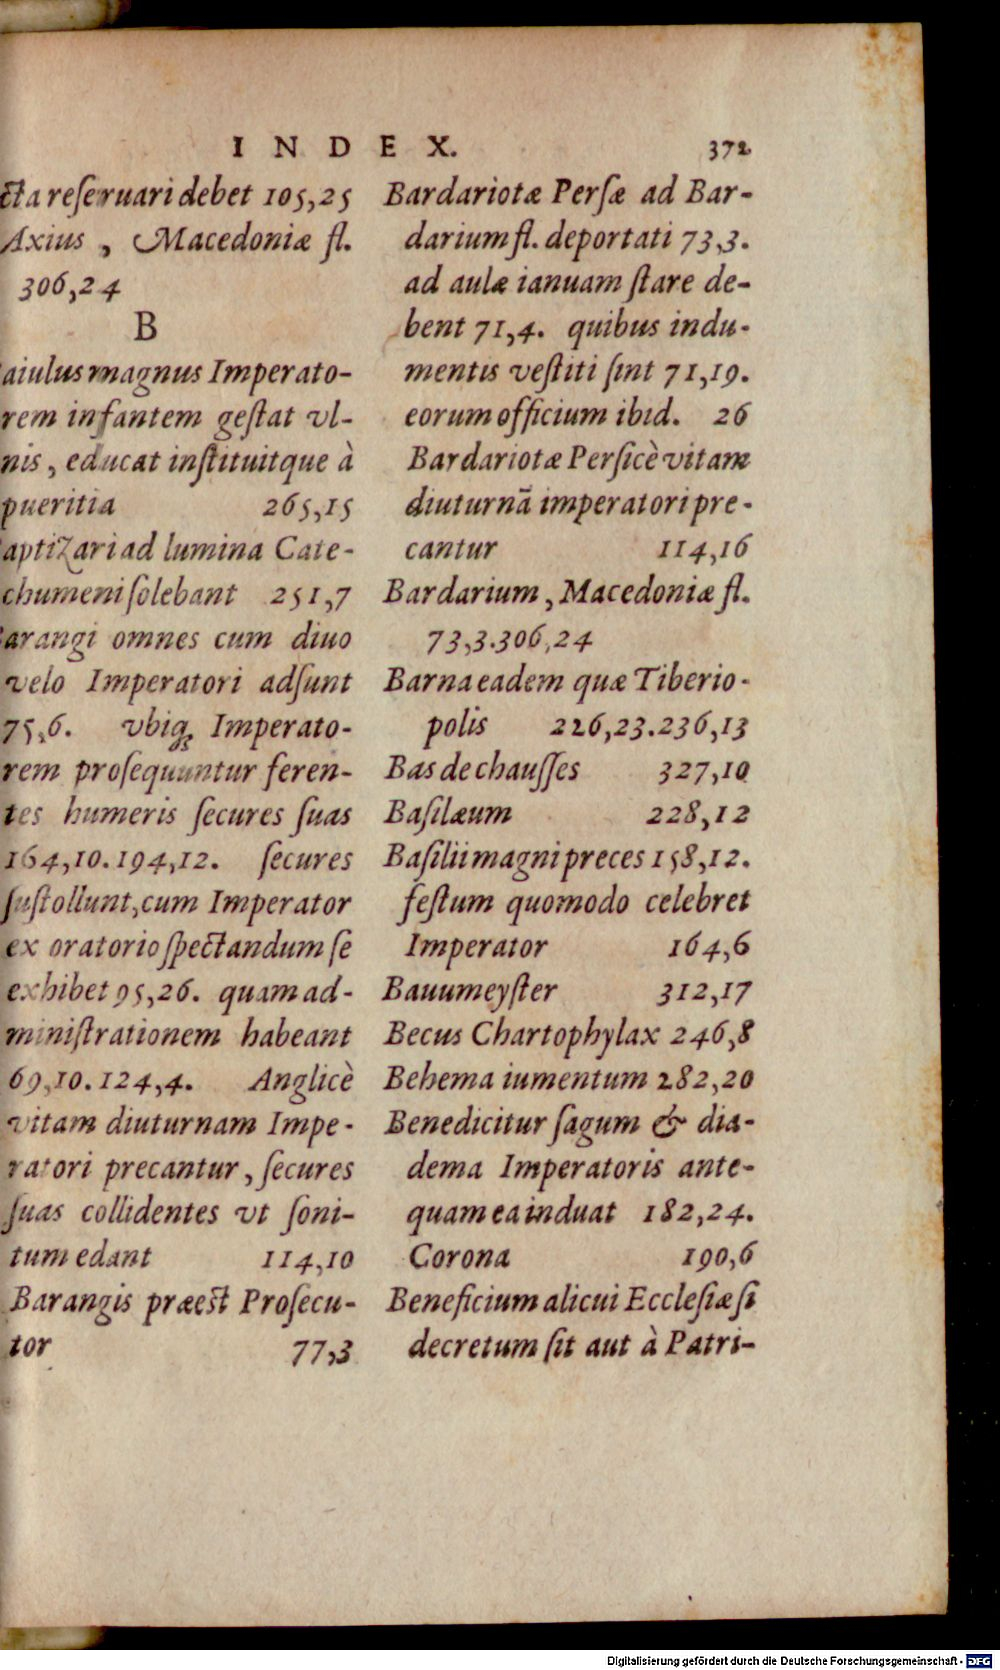 INDEX. 372
cta reſeruari debet 105,25
Axius, Macedoniæ fl.
306,24
B
aiulus magnus Imperato-
rem infantem geſtat vl-
nis, educat inſtituitque à
pueritia 265,15
aptizari ad lumina Cate-
chumeni ſolebant 251,7
arangi omnes cum diuo
velo Imperatori adſunt
75,6. vbiq; Imperato-
rem proſequuntur feren-
tes humeris ſecures ſuas
164,10.194,12. ſecures
ſuſtollunt, cum Imperator
ex oratorio ſpectandum ſe
exhibet 95,26. quam ad-
miniſtrationem habeant
69,10.124,4. Anglicè
vitam diuturnam Impe-
ratori precantur, ſecures
ſuas collidentes vt ſoni-
tum edant 114,10
Barangis præest Proſecu-
tor 77,3
Bardariotæ Perſæ ad Bar-
darium fl. deportati 73,3.
ad aulæ ianuam ſtare de-
bent 71,4. quibus indu-
mentis veſtiti ſint 71,19.
eorum officium ibid. 26
Bardariotæ Perſicè vitam
diuturnã imperatori pre-
cantur 114,16
Bardarium, Macedoniæ fl.
73,3.306,24
Barna eadem quæ Tiberio-
polis 226,23.236,13
Bas de chauſſes 327,10
Baſilæum 228,12
Baſilii magni preces 158,12.
feſtum quomodo celebret
Imperator 164,6
Bauumeyſter 312,17
Becus Chartophylax 246,8
Behema iumentum 282,20
Benedicitur ſagum & dia-
dema Imperatoris ante-
quam ea induat 182,24.
Corona 190,6
Beneficium alicui Eccleſiæ ſi
decretum ſit aut à Patri-
Digitalisierung gefördert durch die Deutsche Forschungsgemeinschaft - DFG